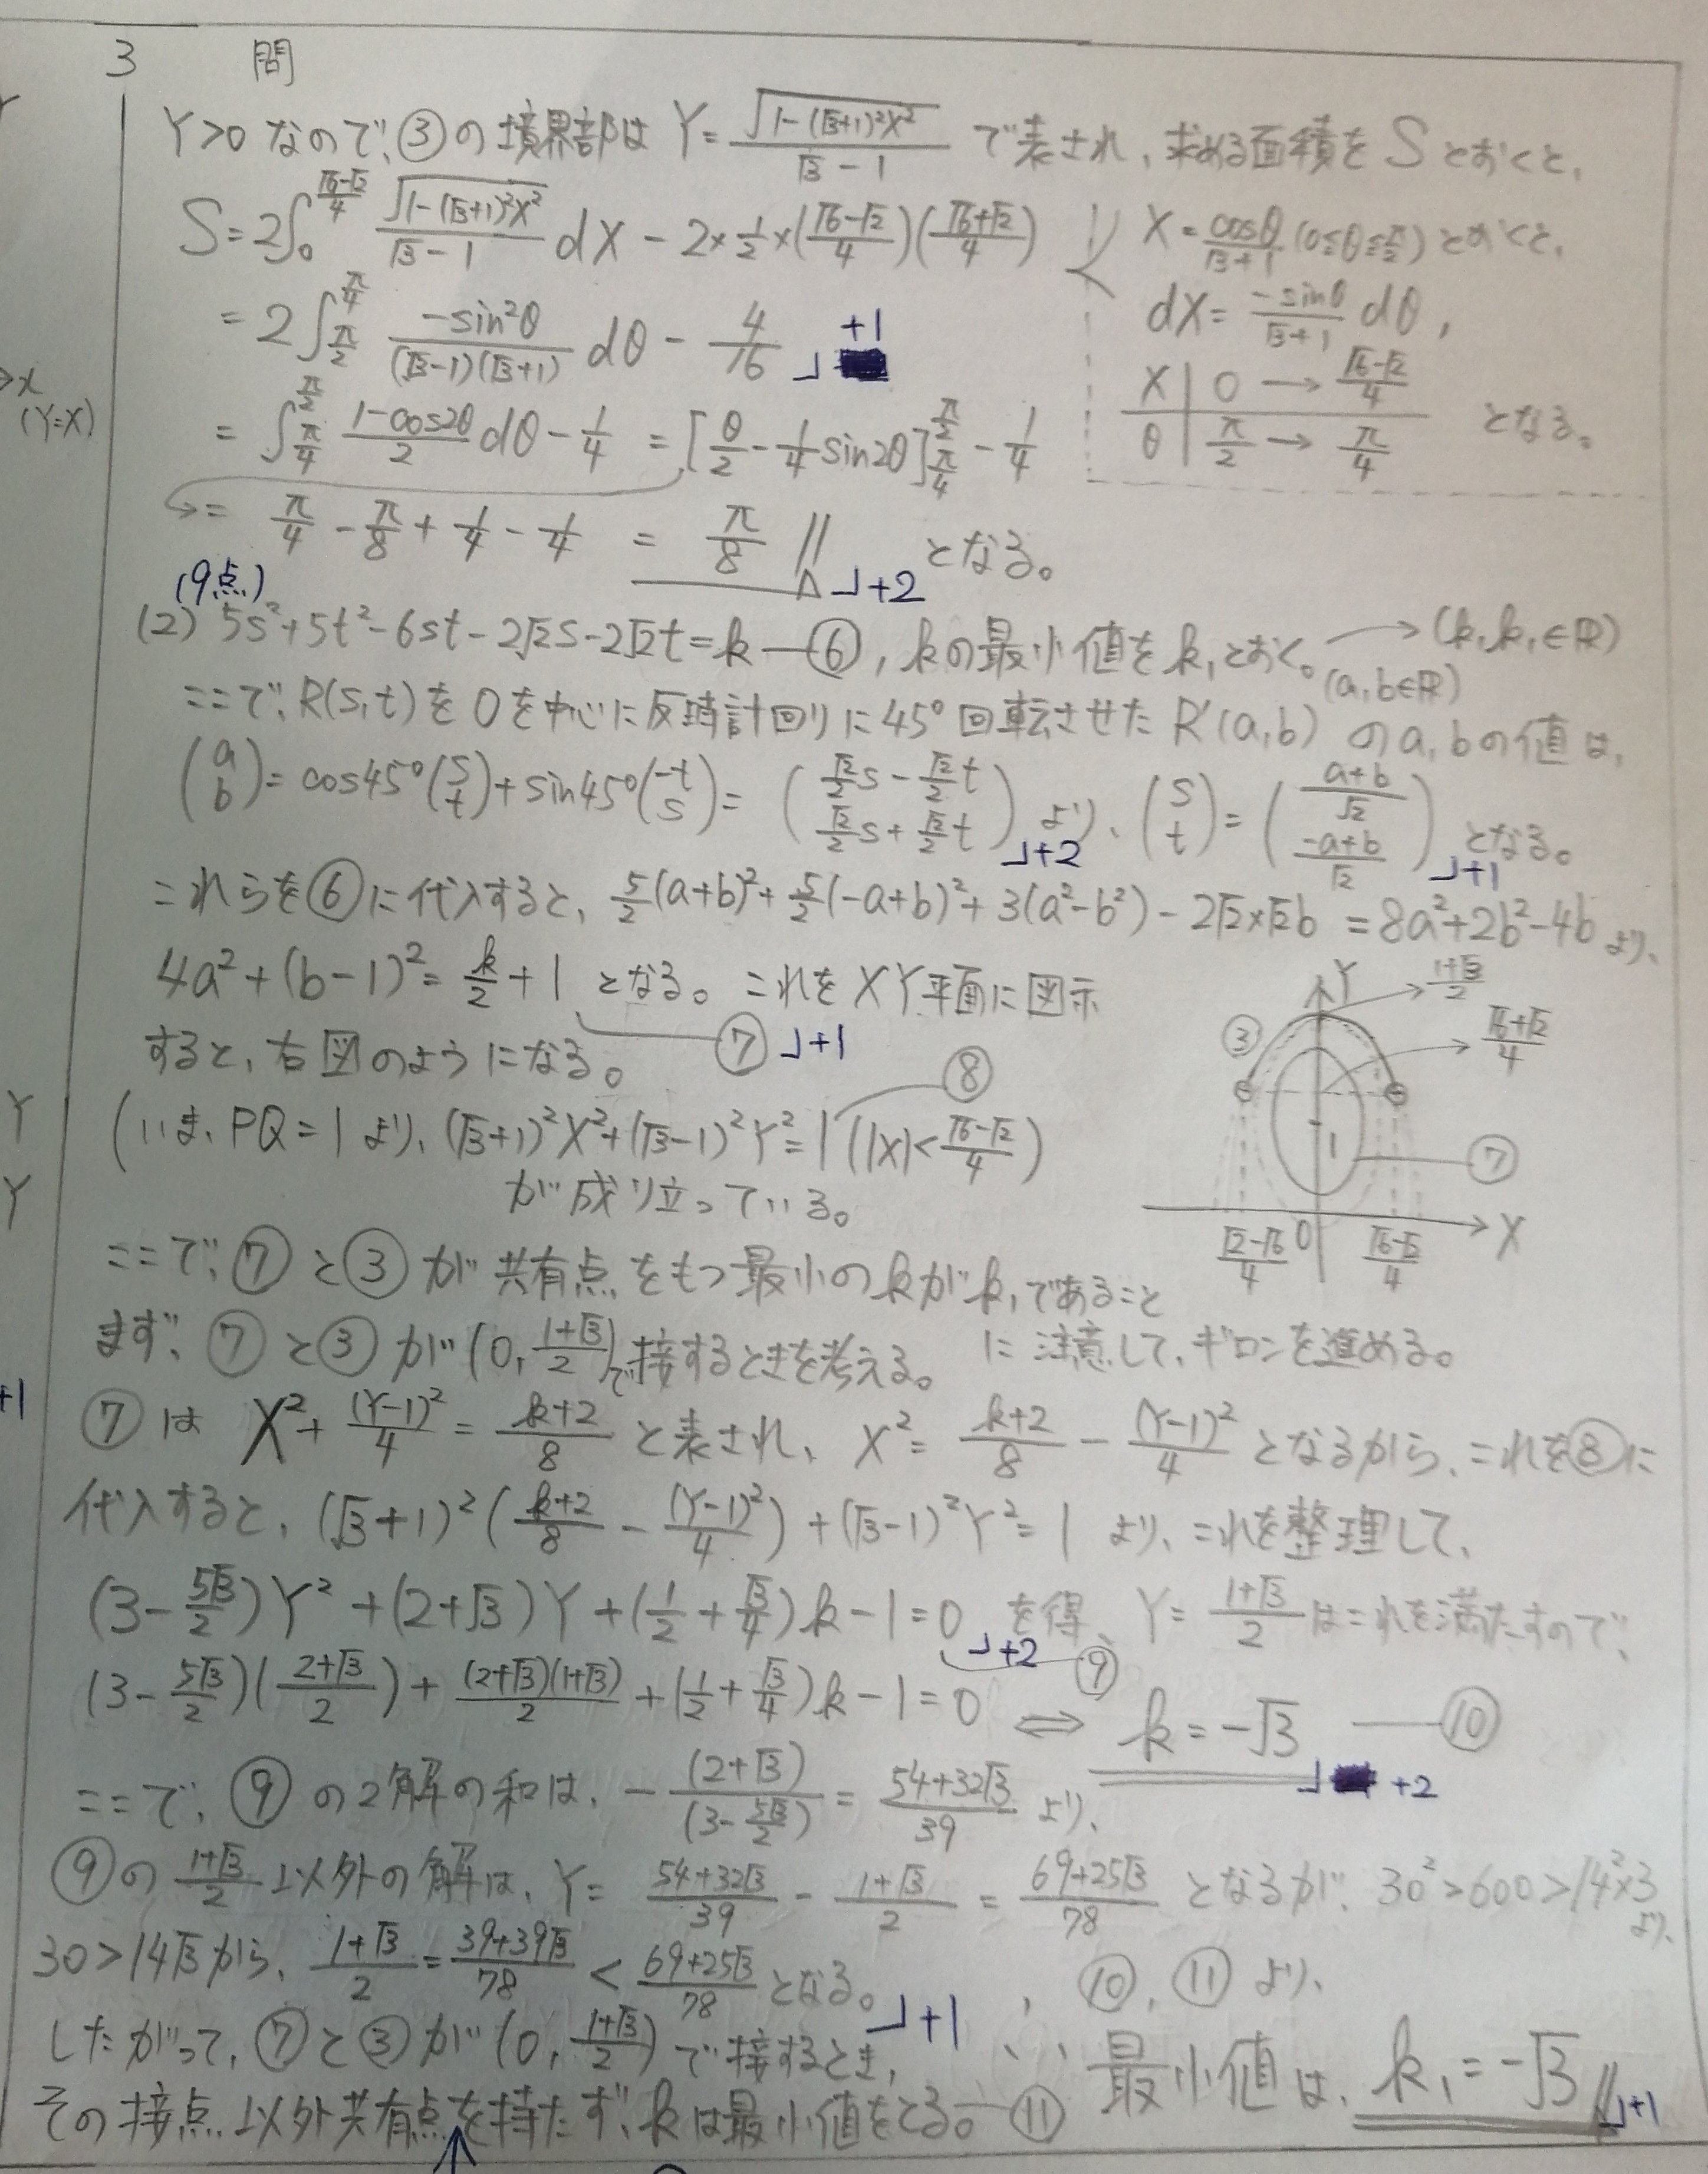 3 問
Y>0 なので、③の境界部は Y=√(1-(√3+1)²X²)/(√3-1) で表され、求める面積を S とおくと、
S=2∫₀^((√6-√2)/4) √(1-(√3+1)²X²)/(√3-1) dX - 2×1/2×((√6-√2)/4)((√6+√2)/4)
X=cosθ/(√3+1) (0≦θ≦π/2) とおくと、
dX=-sinθ/(√3+1) dθ,
X | 0 → (√6-√2)/4
θ | π/2 → π/4 となる。
=2∫_(π/2)^(π/4) -sin²θ/((√3-1)(√3+1)) dθ - 4/16 」+1
→x
(Y=X)
=∫_(π/4)^(π/2) (1-cos2θ)/2 dθ - 1/4 = [θ/2 - 1/4 sin2θ]_(π/4)^(π/2) - 1/4
→= π/4 - π/8 + 1/4 - 1/4 = π/8 // 」+2 となる。
(9点)
(2) 5s²+5t²-6st-2√2s-2√2t=k —⑥, kの最小値をk₁とおく。→(k,k₁∈ℝ)
(a,b∈ℝ)
ここで、R(s,t)を0を中心に反時計回りに45°回転させたR'(a,b) のa,bの値は、
(a b)=cos45°(s t)+sin45°(-t s)=(√2/2s-√2/2t √2/2s+√2/2t) 」+2 より、(s t)=((a+b)/√2 (-a+b)/√2) 」+1 となる。
これらを⑥に代入すると、5/2(a+b)²+5/2(-a+b)²+3(a²-b²)-2√2×√2b =8a²+2b²-4b より、
4a²+(b-1)²=k/2+1 となる。これをXY平面に図示
⑦ 」+1
すると、右図のようになる。
(いま、PQ=1 より、(√3+1)²X²+(√3-1)²Y²=1 (|X|<(√6-√2)/4) ⑧
が成り立っている。
Y
(1+√3)/2
(√6+√2)/4
③
1
⑦
(√2-√6)/4 0 (√6-√2)/4 X
Y
Y
ここで、⑦と③が共有点をもつ最小のkがk₁であること
に注意して、ギロンを進める。
まず、⑦と③が(0,(1+√3)/2)で接するときを考える。
+1
⑦は X²+(Y-1)²/4=(k+2)/8 と表され、X²=(k+2)/8-(Y-1)²/4 となるから、これを⑧に
代入すると、(√3+1)²((k+2)/8-(Y-1)²/4)+(√3-1)²Y²=1 より、これを整理して、
(3-5√3/2)Y²+(2+√3)Y+(1/2+√3/4)k-1=0 」+2 ⑨ を得、Y=(1+√3)/2はこれを満たすので、
(3-5√3/2)((2+√3)/2)+(2+√3)(1+√3)/2+(1/2+√3/4)k-1=0 ⟺ k=-√3 —⑩
」+2
ここで、⑨の2解の和は、-(2+√3)/(3-5√3/2)=(54+32√3)/39 より、
⑨の(1+√3)/2以外の解は、Y=(54+32√3)/39-(1+√3)/2=(69+25√3)/78 となるが、30²>600>14²×3より、
30>14√3から、(1+√3)/2=(39+39√3)/78<(69+25√3)/78となる。」+1
したがって、⑦と③が(0,(1+√3)/2)で接するとき、
その接点以外共有点を持たず、kは最小値をとる。—⑪
, ⑩,⑪より、
最小値は、k₁=-√3 // 」+1